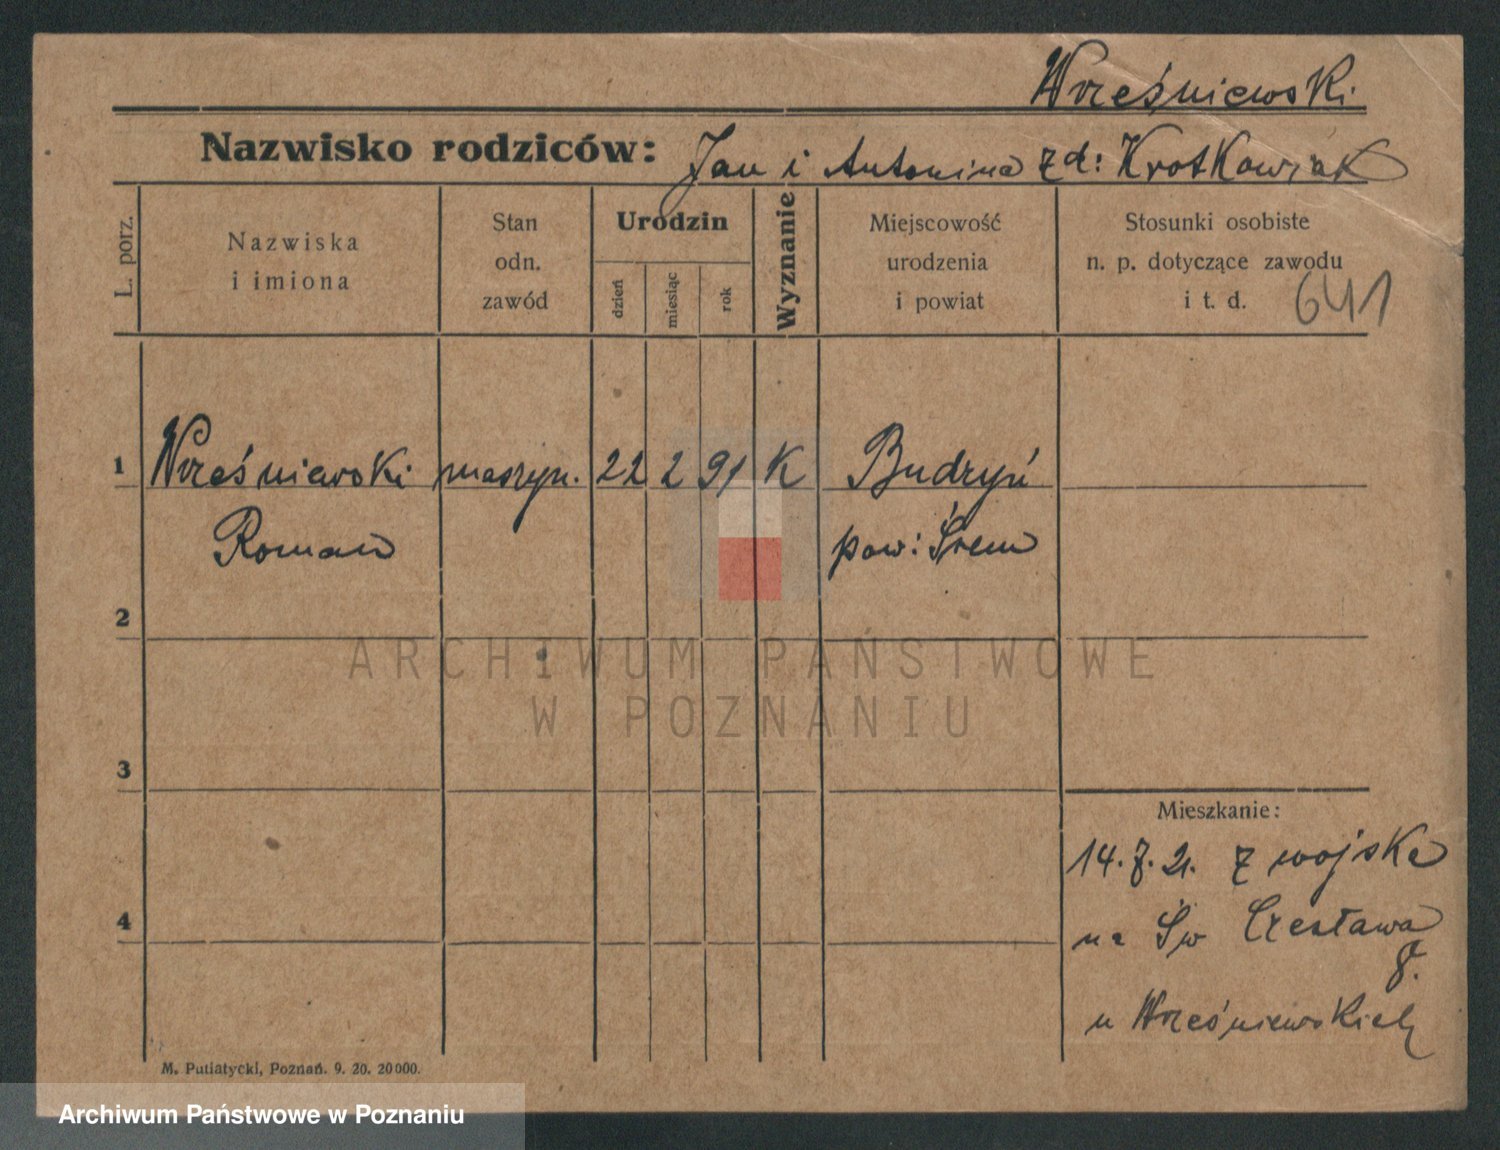 Wreśniewski
Nazwisko rodziców: Jan i Antonina zd: Krotkowiak
L. porz.
Nazwiska
i imiona
Stan
odn.
zawód
Urodzin
dzień
miesiąc
rok
Wyznanie
Miejscowość
urodzenia
i powiat
Stosunki osobiste
n. p. dotyczące zawodu
i t. d.
641
1 Wreśniewski maszyn. 22 2 91 K Budzyń
Roman pow: Śrem
2
3
4
Mieszkanie:
14. 7. 21. z wojska
na Św Czesława
8.
u Wreśniewskich
M. Putiatycki, Poznań. 9. 20. 20000.
ARCHIWUM PAŃSTWOWE
W POZNANIU
Archiwum Państwowe w Poznaniu